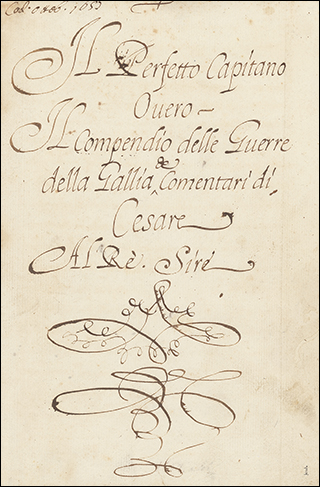 Cod: CXCO. 1053
Il Perfetto Capitano
Overo
Il Compendio delle Guerre
della Gallia de Comentari di
Cesare
Al Rè. Sire
1